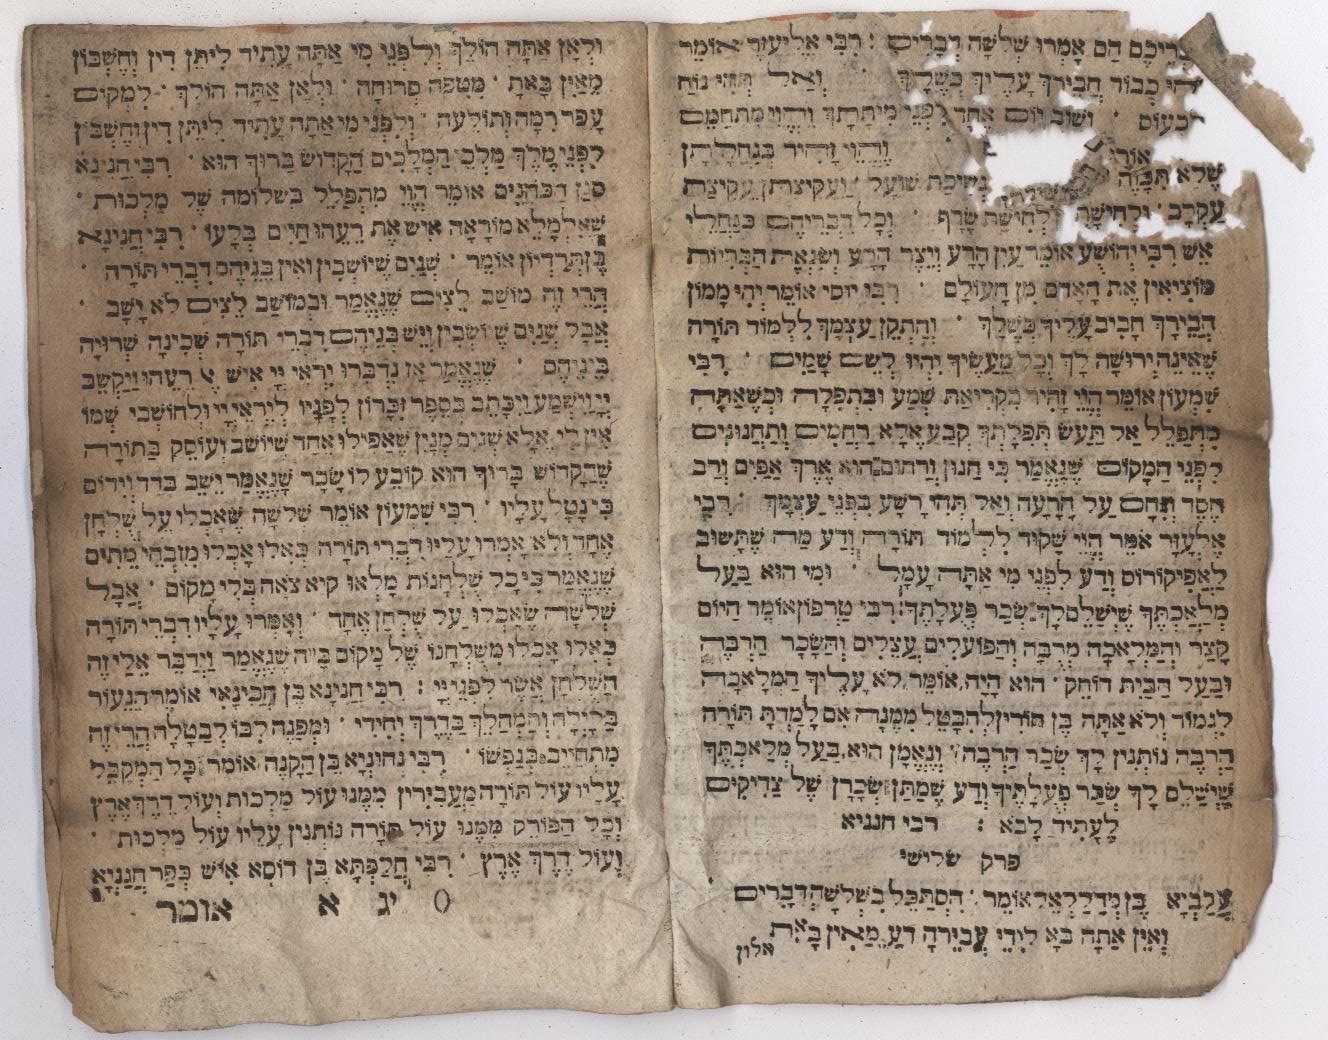 צריכם הם אמרו שלשה דברים : רבי אליעזר אומר
יהי כבוד חבירך עליך כשלך ואל תהי נוח
לכעוס ושוב יום אחד לפני מיתתך והוי מתחמם
אורן והוי זהיר בגחלתן
שלא תכוה נשיכת שועל ועקיצתן עקיצת
עקרב ולחישתן לחישת שרף וכל דבריהם כגחלי
אש רבי יהושע אומר עין הרע ויצר הרע ושנאת הבריות
מוציאין את האדם מן העולם רבי יוסי אומר יהי ממון
חבירך חביב עליך כשלך והתקן עצמך ללמוד תורה
שאינה ירושה לך וכל מעשיך יהיו לשם שמים רבי
שמעון אומר הוי זהיר בקריאת שמע ובתפלה וכשאתה
מתפלל אל תעש תפלתך קבע אלא רחמים ותחנונים
לפני המקום שנאמר כי חנון ורחום הוא ארך אפים ורב
חסד ונחם על הרעה ואל תהי רשע בפני עצמך רבי
אלעזר אומר הוי שקוד ללמוד תורה ודע מה שתשוב
לאפיקורוס ודע לפני מי אתה עמל ומי הוא בעל
מלאכתך שישלם לך שכר פעלתך : רבי טרפון אומר היום
קצר והמלאכה מרובה והפועלים עצלים והשכר הרבה
ובעל הבית דוחק הוא היה אומר לא עליך המלאכה
לגמור ולא אתה בן חורין להבטל ממנה אם למדת תורה
הרבה נותנין לך שכר הרבה ונאמן הוא בעל מלאכתך
שישלם לך שכר פעלתיך ודע שמתן שכרן של צדיקים
לעתיד לבא : רבי חנניא
פרק שלישי
עקביא בן מהללאל אומר הסתכל בשלשה דברים
ואין אתה בא לידי עבירה דע מאין באת
ולאן
ולאן אתה הולך ולפני מי אתה עתיד ליתן דין וחשבון
מאין באת מטפה סרוחה ולאן אתה הולך למקום
עפר רמה ותולעה ולפני מי אתה עתיד ליתן דין וחשבון
לפני מלך מלכי המלכים הקדוש ברוך הוא רבי חנינא
סגן הכהנים אומר הוי מתפלל בשלומה של מלכות
שאלמלא מוראה איש את רעהו חיים בלעו רבי חנינא
בן תרדיון אומר שנים שיושבין ואין בניהם דברי תורה
הרי זה מושב לצים שנאמר ובמושב לצים לא ישב
אבל שנים שיושבין ויש בניהם דברי תורה שכינה שרויה
ביניהם שנאמר אז נדברו יראי יי איש רעהו ויקשב
יי וישמע ויכתב בספר זכרון לפניו ליראי יי ולחושבי שמו
אין לי אלא שנים מנין שאפילו אחד שיושב ועוסק בתורה
שהקדוש ברוך הוא קובע לו שכר שנאמר ישב בדד וידום
כי נטל עליו רבי שמעון אומר שלשה שאכלו על שלחן
אחד ולא אמרו עליו דברי תורה כאלו אכלו מזבחי מתים
שנאמר כי כל שלחנות מלאו קיא צואה בלי מקום אבל
שלשה שאכלו על שלחן אחד ואמרו עליו דברי תורה
כאלו אכלו משלחנו של מקום ב״ה שנאמר וידבר אלי זה
השלחן אשר לפני יי : רבי חנינא בן חכינאי אומר הנעור
בלילה והמהלך בדרך יחידי ומפנה לבו לבטלה הרי זה
מתחייב בנפשו רבי נחוניא בן הקנה אומר כל המקבל
עליו עול תורה מעבירין ממנו עול מלכות ועול דרך ארץ
וכל הפורק ממנו עול תורה נותנין עליו עול מלכות
ועול דרך ארץ רבי חלפתא בן דוסא איש כפר חנניא
יג א אומר